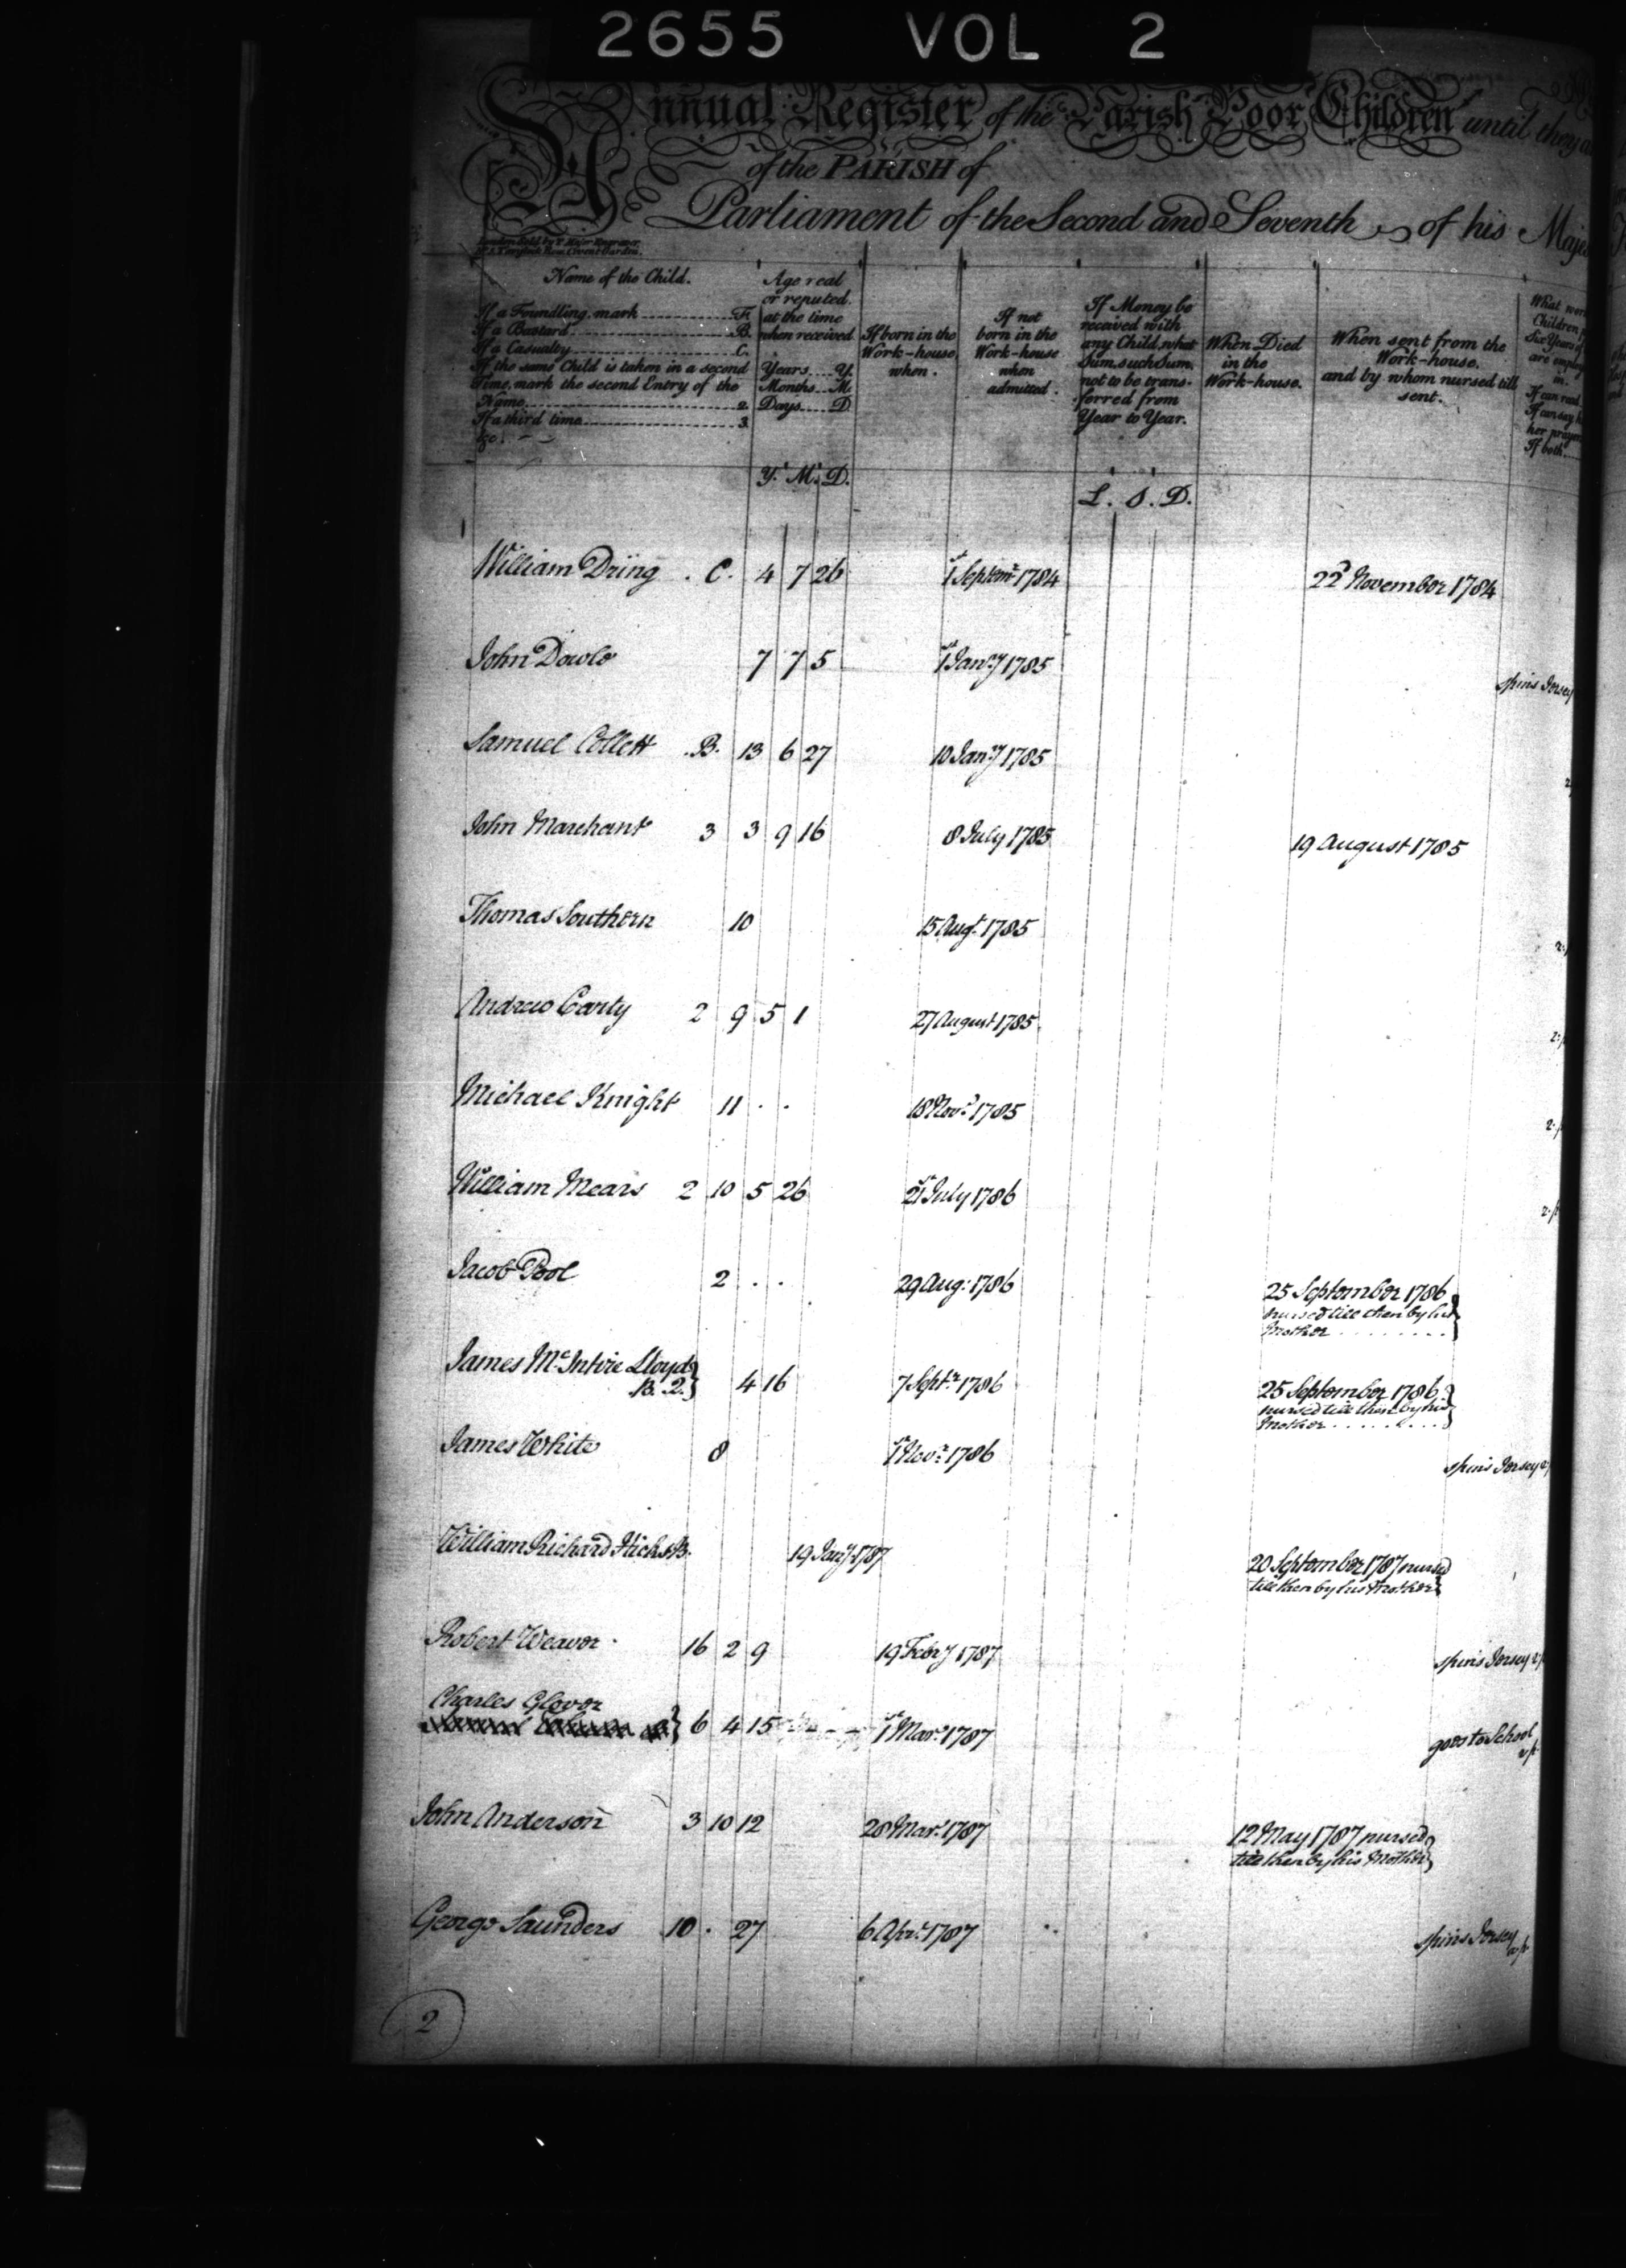 2655 VOL 2
Annual Register of the Parish Poor Children until they
of the PARISH of
Parliament of the Second and Seventh of his Maje
Name of the Child.
If a Foundling mark F.
If a Bastard B.
If a Casualty C.
If the same Child is taken in a second
Time, mark the second Entry of the
Name 2.
If a third time 3.
&c.
Age real
or reputed
at the time
when received
Years Y.
Months M.
Days D.
If born in the
Work-house,
when.
If not
born in the
Work-house
when
admitted.
If Money be
received with
any Child, what
Sum, such Sum,
not to be trans-
ferred from
Year to Year.
When Died
in the
Work-house.
When sent from the
Work-house.
and by whom nursed till
sent.
What wor
Children
Six Years
are employ
in.
If can read
If can say h
her prayer
If both
Y. M. D.
L. S. D.
William Dring . C. 4 7 26 1st Septemr 1784 22d November 1784
John Dowle 7 7 5 1st Jany 1785 spins Jersey
Samuel Collett .B. 13 6 27 10 Jany 1785
John Marchant 3 3 9 16 8 July 1785 19 August 1785
Thomas Southern 10 15 Augt. 1785
Andrew Carty 2 9 5 1 27 August 1785
Michael Knight 11 . . 18 Novr. 1785
William Mears 2 10 5 26 21st July 1786
Jacob Pool 2 . . 29 Aug: 1786 25 September 1786
nursed till then by his
Mother
James McIntire Lloyd
B. 2. 4 16 7 Septr. 1786 25 September 1786
nursed till then by his
Mother
James White 8 1st Novr. 1786 spins Jersey
William Richard Hicks B. 19 Jany 1787 20 September 1787 nursed
till then by his Mother
Robert Weaver . 16 2 9 19 Febry 1787 spins Jersey
Charles Glover
6 4 15 1st Mar: 1787 goes to School
John Anderson 3 10 12 28 Mar: 1787 12 May 1787 nursed
till then by his Mother
George Saunders 10 . 27 6 Apr: 1787 spins Jersey
2